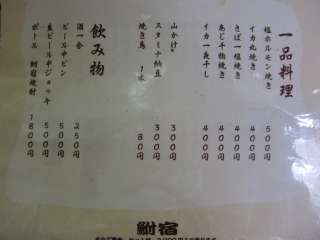 一品料理
塩ホルモン焼き 500円
イカ丸焼き 400円
さば一塩焼き 400円
あじ干物焼き 400円
イカ一夜干し 400円
山かけ 300円
スタミナ納豆 300円
焼き鳥 1本 80円
飲み物
酒一合 250円
ビール中ビン 500円
生ビール中ジョッキ 500円
ボトル 鮒宿焼酎 1800円
鮒宿